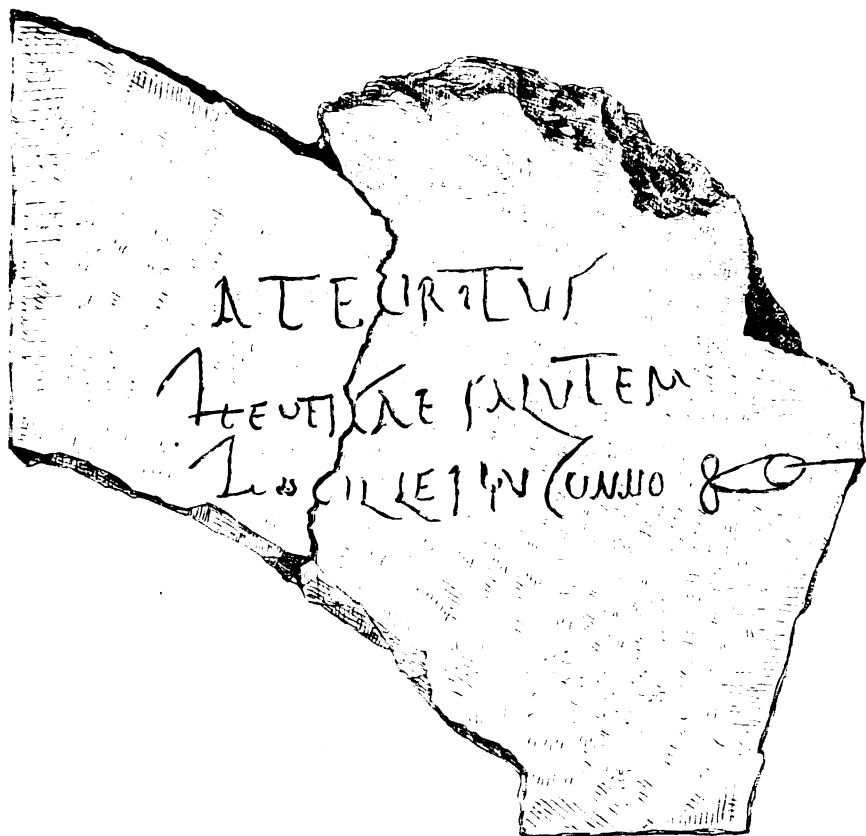 ATEURITUS
HEUTICAE SALUTEM
HOC ILLEI IN CUNNO